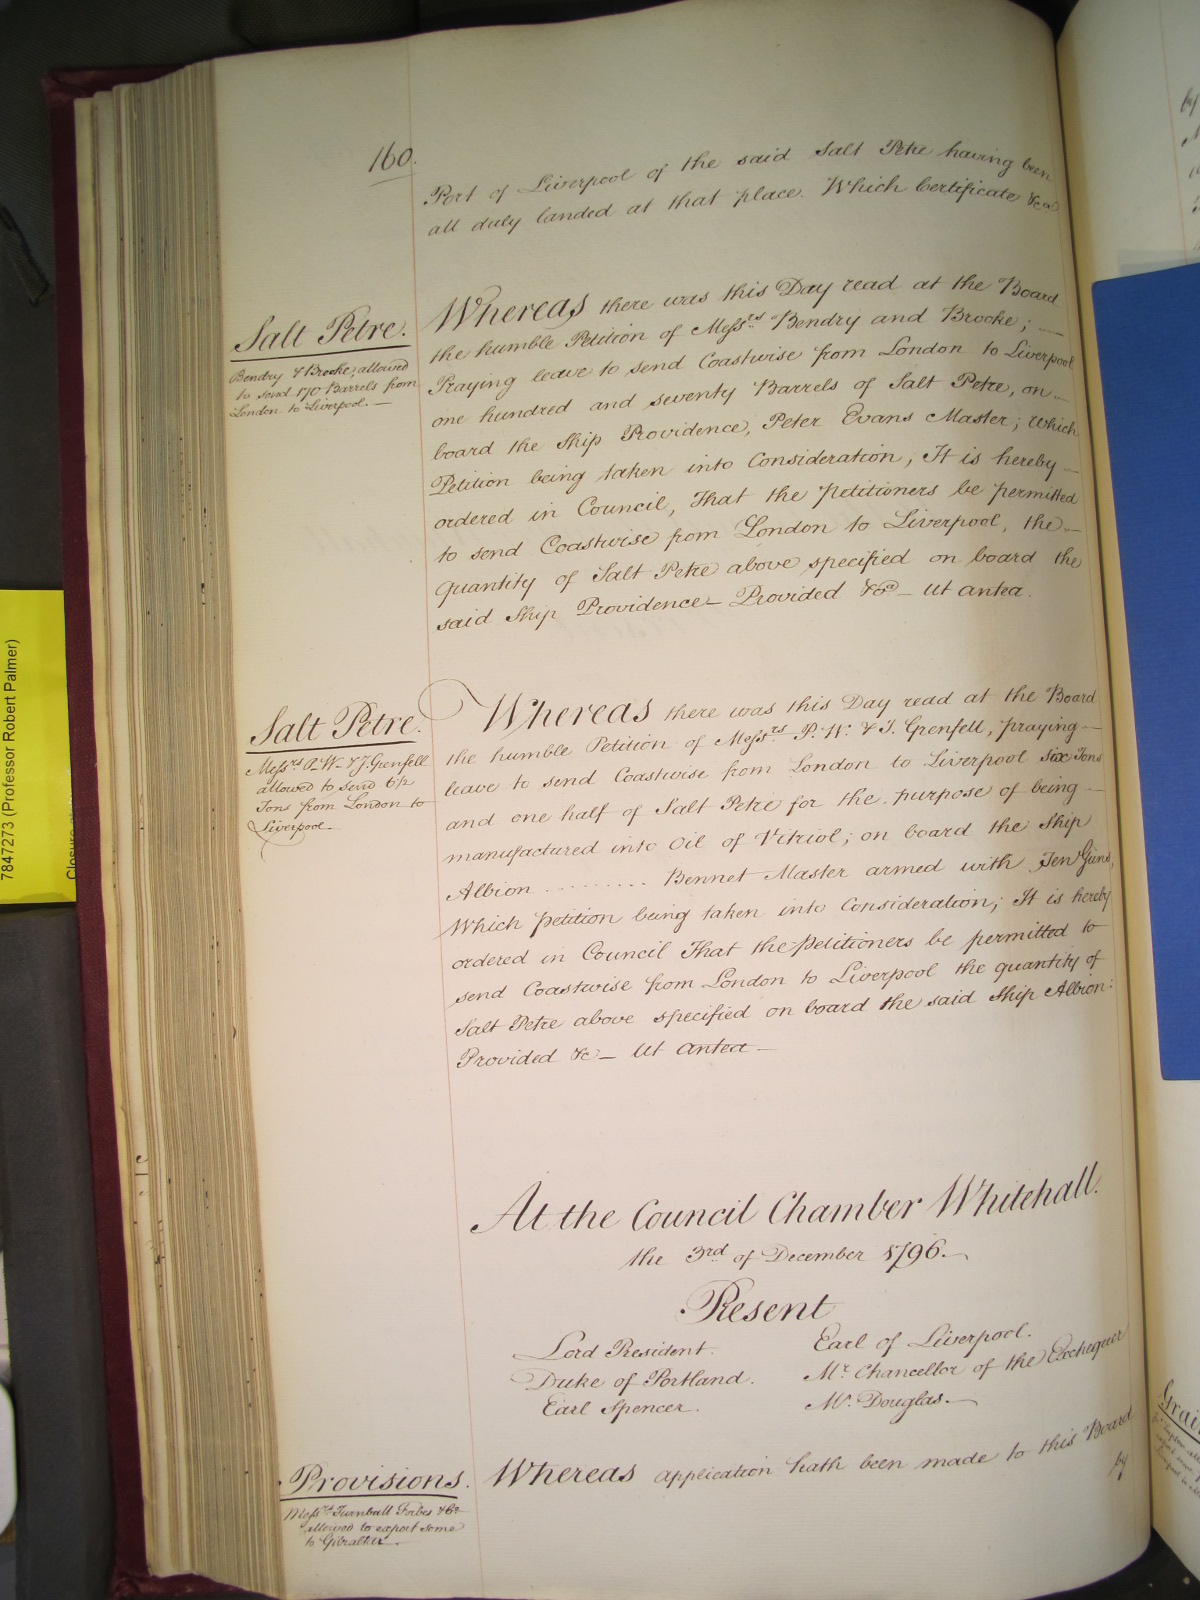 160.
Port of Liverpool of the said Salt Petre having been
all duly landed at that place. Which Certificate &ca
Salt Petre.
Bendry & Brocke, allowed
to send 170 Barrels from
London to Liverpool. —
Whereas there was this Day read at the Board
the humble Petition of Messrs Bendry and Brocke; —
Praying leave to send Coastwise from London to Liverpool
one hundred and seventy Barrels of Salt Petre, on —
board the Ship Providence, Peter Evans Master; which
Petition being taken into Consideration, It is hereby —
ordered in Council, That the petitioners be permitted
to send Coastwise from London to Liverpool, the —
quantity of Salt Petre above specified on board the
said Ship Providence — Provided &ca — ut antea.
Salt Petre.
Messrs P. W. & J. Grenfell
allowed to send 6 1/2
Tons from London to
Liverpool.
Whereas there was this Day read at the Board
the humble Petition of Messrs P. W. & J. Grenfell, praying —
leave to send Coastwise from London to Liverpool six Tons
and one half of Salt Petre for the purpose of being —
manufactured into Oil of Vitriol; on board the Ship
Albion ......... Bennet Master armed with Ten Guns,
Which petition being taken into Consideration; It is hereby
ordered in Council That the petitioners be permitted to
send Coastwise from London to Liverpool the quantity of
Salt Petre above specified on board the said Ship Albion:
Provided &c — ut antea —
At the Council Chamber Whitehall.
the 3rd of December 1796. —
Present
Lord President. Earl of Liverpool.
Duke of Portland. Mr. Chancellor of the Exchequer
Earl Spencer. Mr. Douglas. —
Provisions.
Messrs Turnbull Forbes & Co
allowed to export some
to Gibraltar. —
Whereas application hath been made to this Board
by
7847273 (Professor Robert Palmer)
Closure